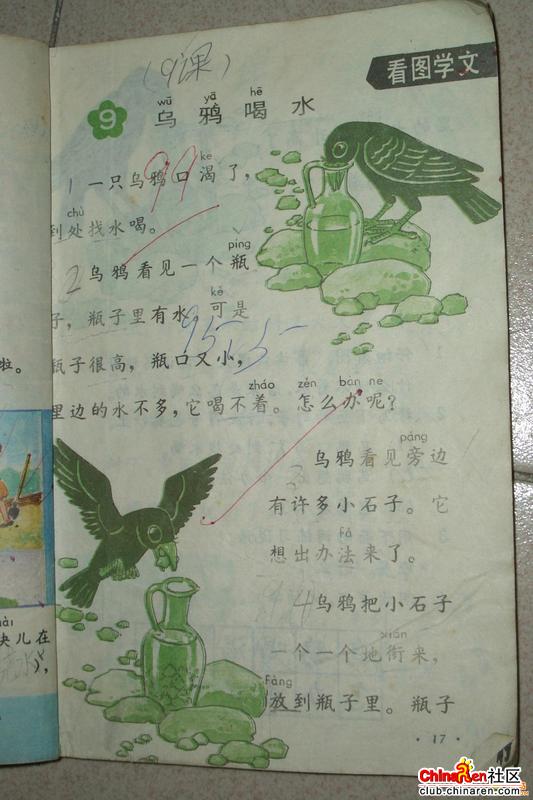 (9课)
看图学文
wū yā hē
9 乌鸦喝水
kě
1 一只乌鸦口渴了,
chù
到处找水喝。
píng
2 乌鸦看见一个瓶
kě
子,瓶子里有水。可是
瓶子很高,瓶口又小,
zháo zěn bàn ne
里边的水不多,它喝不着。怎么办呢?
páng
3 乌鸦看见旁边
有许多小石子。它
fǎ
想出办法来了。
4 乌鸦把小石子
xián
一个一个地衔来,
Fàng
放到瓶子里。瓶子
·17·
啦。
块儿在
ChinaRen社区
club.chinaren.com